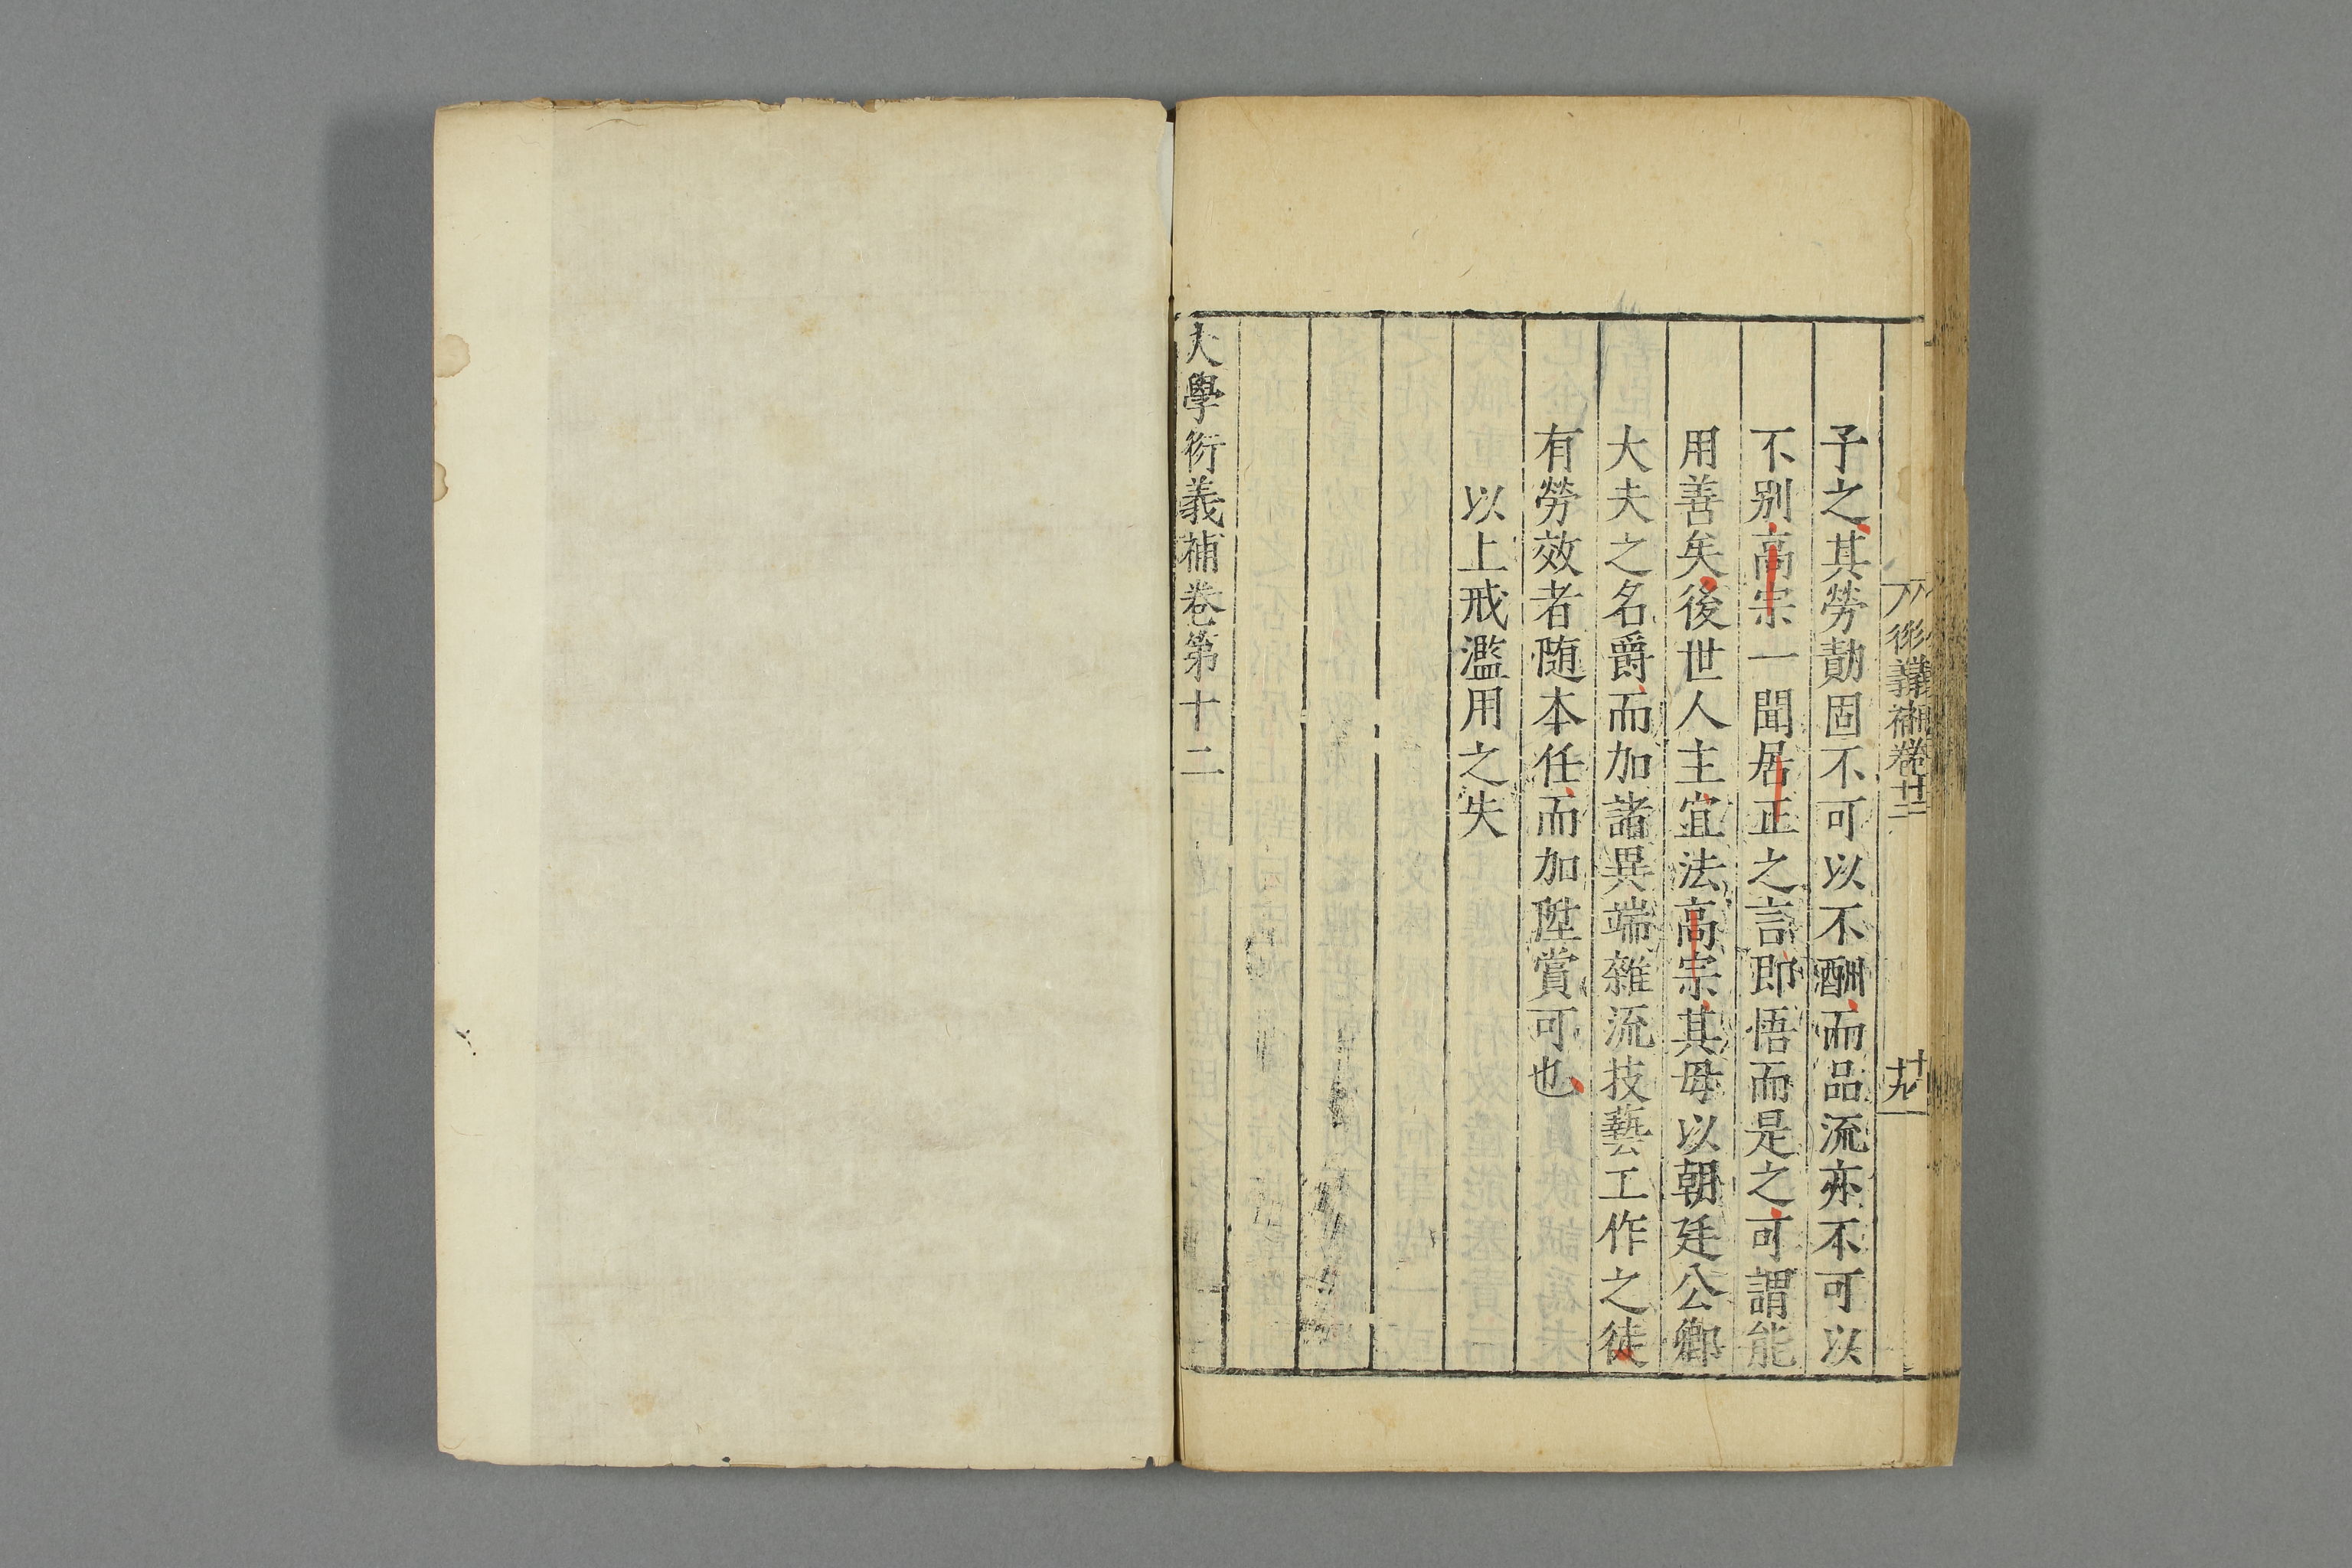 予之其勞勣固不可以不酬而品流亦不可以
不别高宗一聞居正之言即悟而是之可謂能
用善矣後世人主宜法高宗其毋以朝廷公卿
大夫之名爵而加諸異端雜流技藝工作之徒
有勞效者随本任而加陞賞可也
以上戒濫用之失
大學衍義補卷第十二